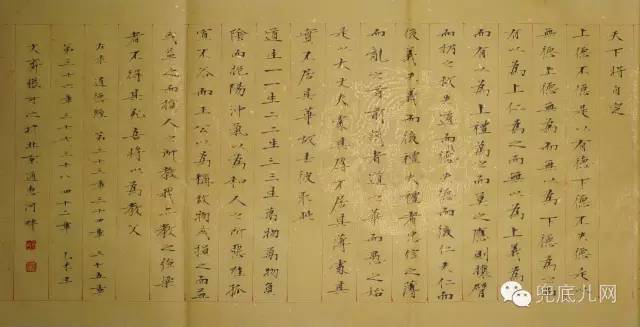 天下將自定
上德不德是以有德下德不失德是以
無德上德無為而無以為下德為之而
有以為上仁為之而無以為上義為之
而有以為上禮為之而莫之應則攘臂
而扔之故失道而後德失德而後仁失仁而
後義失義而後禮夫禮者忠信之薄
而亂之首前識者道之華而愚之始
是以大丈夫處其厚不居其薄處其
實不居其華故去彼取此
道生一一生二二生三三生萬物萬物負
陰而抱陽沖氣以為和人之所惡唯孤
寡不谷而王公以為稱故物或損之而益
或益之而損人之所教我亦教之強梁
者不得其死吾將以為教父
道德經 第三十三章第三十四章 三十五章
第三十六章三十七三十八 四十二章
於北京通惠河畔
兜底儿网